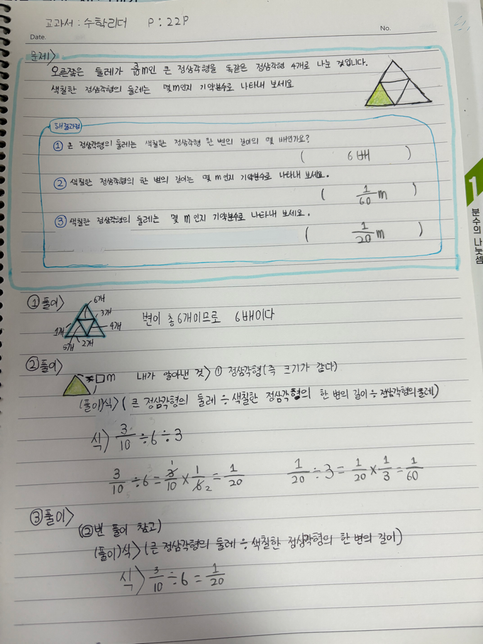 교과서 : 수학리더 P : 22P
Date.
No.
문제>
오른쪽은 둘레가 3/10 m인 큰 정삼각형을 똑같은 정삼각형 4개로 나눈 것입니다.
색칠한 정삼각형의 둘레는 몇 m인지 기약분수로 나타내 보세요
해결과정
① 큰 정삼각형의 둘레는 색칠한 정삼각형 한 변의 길이의 몇 배인가요?
( 6배 )
② 색칠한 정삼각형의 한 변의 길이는 몇 m인지 기약분수로 나타내 보세요.
( 1/60 m )
③ 색칠한 정삼각형의 둘레는 몇 m인지 기약분수로 나타내 보세요.
( 1/20 m )
1
분수의 나눗셈
①풀이>
6개
3개
1개
4개
5개 2개
변이 총 6개이므로 6배이다
②풀이>
=□m
내가 알아낸 것> ① 정삼각형(즉 크기가 같다)
(풀이)식>(큰 정삼각형의 둘레 ÷ 색칠한 정삼각형의 한 변의 길이 ÷ 정삼각형의 둘레)
식> 3/10 ÷ 6 ÷ 3
3/10 ÷ 6 = 3/10 × 1/6 = 1/20 1/20 ÷ 3 = 1/20 × 1/3 = 1/60
③풀이>
(②번 풀이 참고)
(풀이)식>(큰 정삼각형의 둘레 ÷ 색칠한 정삼각형의 한 변의 길이)
식> 3/10 ÷ 6 = 1/20